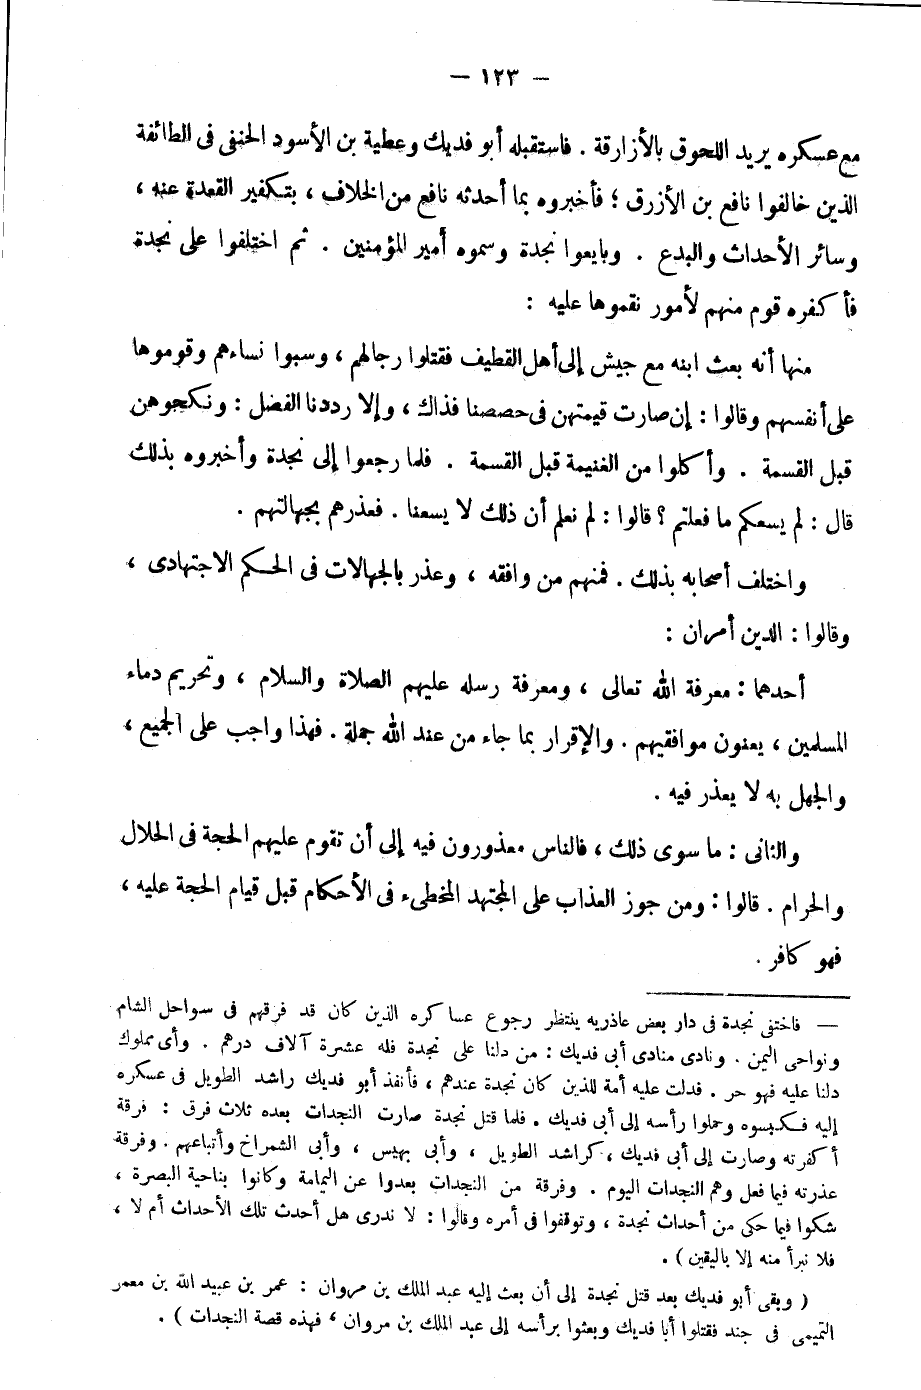 — ١٢٣ —
مع عسكره يريد اللحوق بالأزارقة . فاستقبله أبو فديك وعطية بن الأسود الحنفى فى الطائفة
الذين خالفوا نافع بن الأزرق ؛ فأخبروه بما أحدثه نافع من الخلاف ، بتكفير القعدة عنه ،
وسائر الأحداث والبدع . وبايعوا نجدة وسموه أمير المؤمنين . ثم اختلفوا على نجدة
فأكفره قوم منهم لأمور نقموها عليه :
منها أنه بعث ابنه مع جيش إلى أهل القطيف فقتلوا رجالهم ، وسبوا نساءهم وقوموها
على أنفسهم وقالوا : إن صارت قيمتهن فى حصصنا فذاك ، وإلا رددنا الفضل : ونكحوهن
قبل القسمة . وأكلوا من الغنيمة قبل القسمة . فلما رجعوا إلى نجدة وأخبروه بذلك
قال : لم يسعكم ما فعلتم ؟ قالوا : لم نعلم أن ذلك لا يسعنا . فعذرهم بجهالتهم .
واختلف أصحابه بذلك . فمنهم من وافقه ، وعذر بالجهالات فى الحكم الاجتهادى ،
وقالوا : الدين أمران :
أحدهما : معرفة الله تعالى ، ومعرفة رسله عليهم الصلاة والسلام ، وتحريم دماء
المسلمين ، يعنون موافقيهم . والإقرار بما جاء من عند الله جملة . فهذا واجب على الجميع ،
والجهل به لا يعذر فيه .
والثانى : ما سوى ذلك ، فالناس معذورون فيه إلى أن تقوم عليهم الحجة فى الحلال
والحرام . قالوا : ومن جوز العذاب على المجتهد المخطىء فى الأحكام قبل قيام الحجة عليه ،
فهو كافر .
— فاختفى نجدة فى دار بعض عاذريه ينتظر رجوع عساكره الذين كان قد فرقهم فى سواحل الشام
ونواحى اليمن . ونادى منادى أبى فديك : من دلنا على نجدة فله عشرة آلاف درهم . وأى مملوك
دلنا عليه فهو حر . فدلت عليه أمة للذين كان نجدة عندهم ، فأنفذ أبو فديك راشد الطويل فى عسكره
إليه فكبسوه وحملوا رأسه إلى أبى فديك . فلما قتل نجدة صارت النجدات بعده ثلاث فرق : فرقة
أكفرته وصارت إلى أبى فديك ، كراشد الطويل ، وأبى بهيس ، وأبى الشمراخ وأتباعهم . وفرقة
عذرته فيما فعل وهم النجدات اليوم . وفرقة من النجدات بعدوا عن اليمامة وكانوا بناحية البصرة ،
شكوا فيما حكى من أحداث نجدة ، وتوقفوا فى أمره وقالوا : لا ندرى هل أحدث تلك الأحداث أم لا ،
فلا نبرأ منه إلا باليقين ) .
( وبقى أبو فديك بعد قتل نجدة إلى أن بعث إليه عبد الملك بن مروان : عمر بن عبيد الله بن معمر
التميمى فى جند فقتلوا أبا فديك وبعثوا برأسه إلى عبد الملك بن مروان ، فهذه قصة النجدات ) .